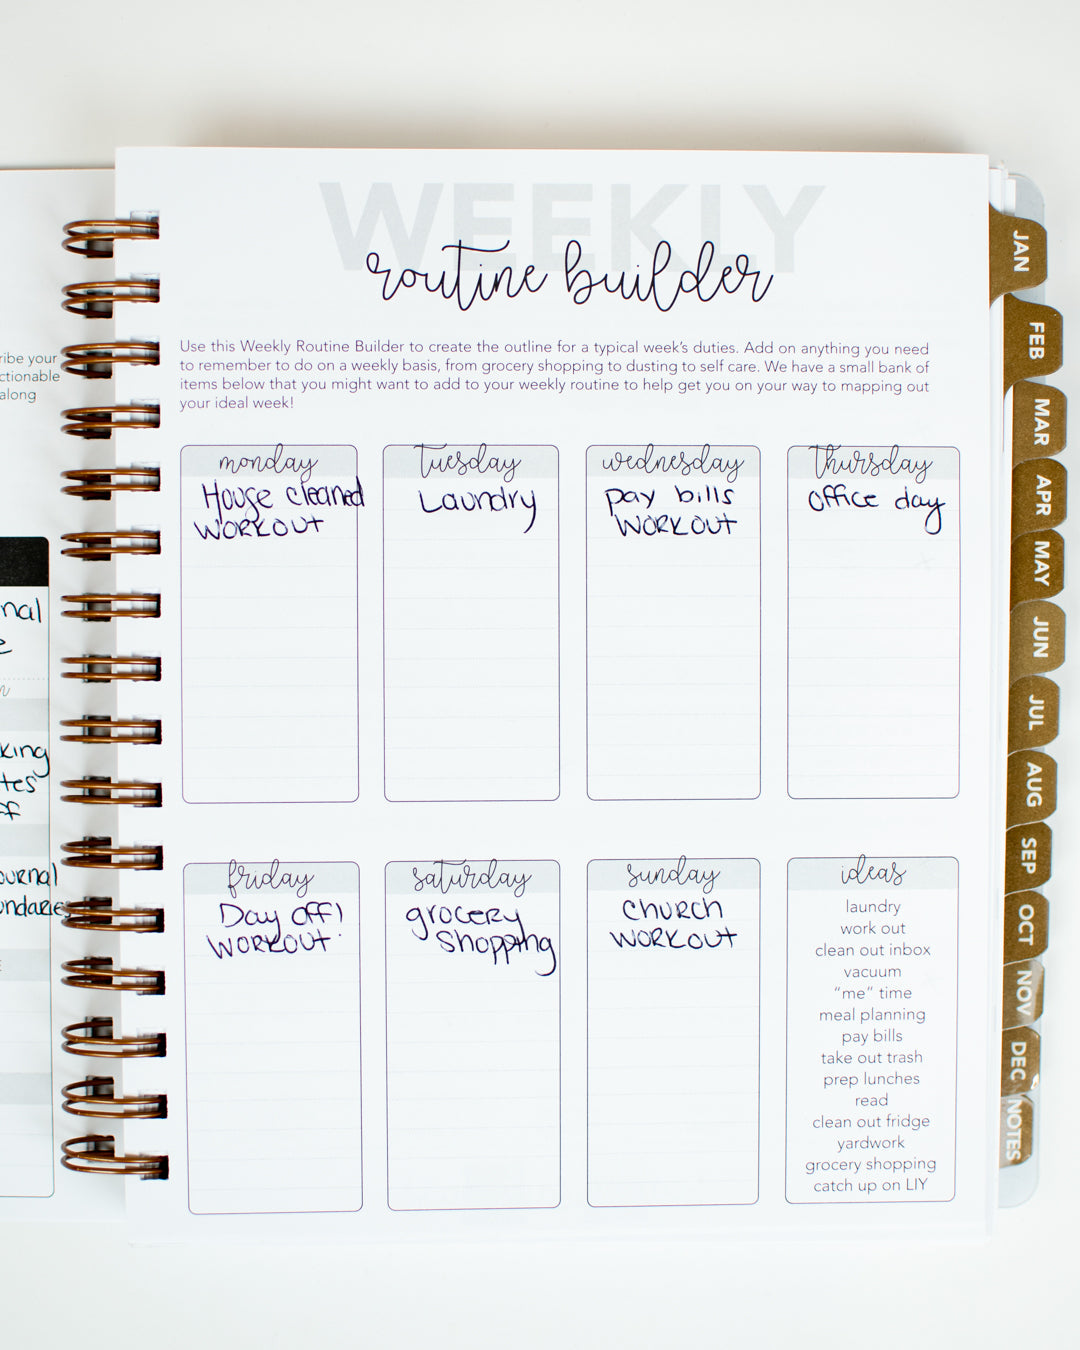 ribe your
ctionable
along
nal
king
tes
ff
ournal
undaries
WEEKLY
routine builder
Use this Weekly Routine Builder to create the outline for a typical week's duties. Add on anything you need
to remember to do on a weekly basis, from grocery shopping to dusting to self care. We have a small bank of
items below that you might want to add to your weekly routine to help get you on your way to mapping out
your ideal week!
monday
House cleaned
WORKOUT
tuesday
Laundry
wednesday
pay bills
WORKOUT
thursday
office day
friday
Day off!
WORKOUT
saturday
grocery
shopping
sunday
CHURCH
WORKOUT
ideas
laundry
work out
clean out inbox
vacuum
"me" time
meal planning
pay bills
take out trash
prep lunches
read
clean out fridge
yardwork
grocery shopping
catch up on LIY
JAN
FEB
MAR
APR
MAY
JUN
JUL
AUG
SEP
OCT
NOV
DEC
NOTES